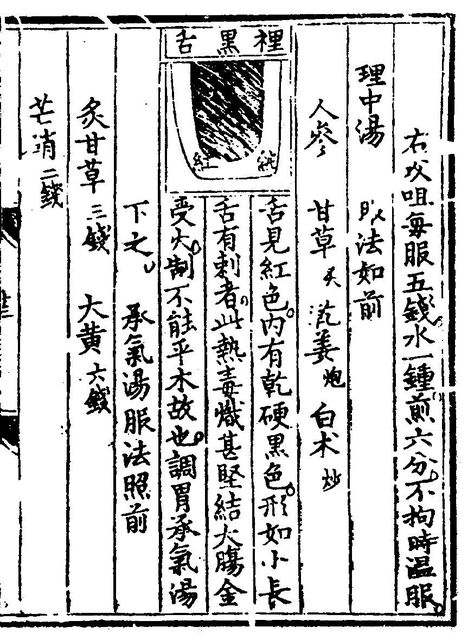 右㕮咀每服五錢水一鍾煎六分。不拘時溫服。
理中湯 服法如前
人參 甘草炙 乾姜炮 白术炒
裡黑舌
純紅
舌見紅色。内有乾硬黑色。形如小長
舌有刺者。此熱毒熾甚堅結大腸金
受火制。不能平木故也。調胃承氣湯
下之。 承氣湯服法照前
炙甘草三錢 大黄六錢
芒消二錢